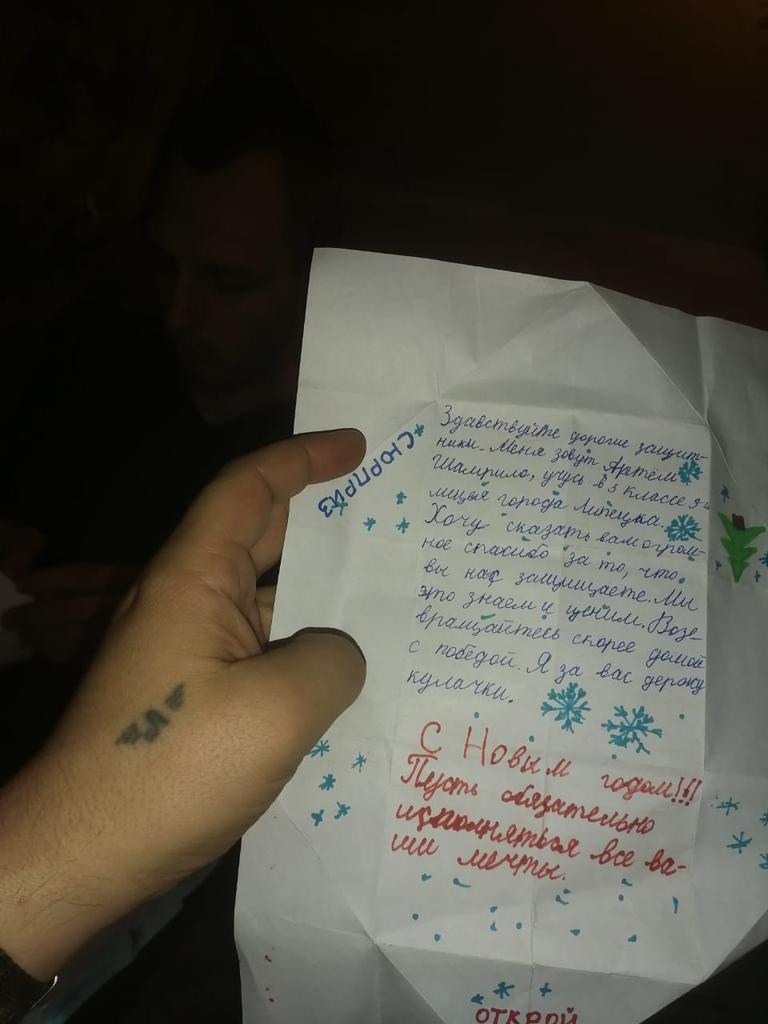 СЮРПРИЗ
Здавствуйте дорогие защит-
ники. Меня зовут Артём
Шамрило, учусь в 3 классе
лицея города Липецка.
Хочу сказать вам огром-
ное спасибо за то, что
вы нас защищаете. Мы
это знаем и ценим. Возв
вращайтесь скорее домой
с победой. Я за вас держу
кулачки.
С Новым годом!!!
Пусть обязательно
исполняться все ва-
ши мечты.
ОТКРОЙ